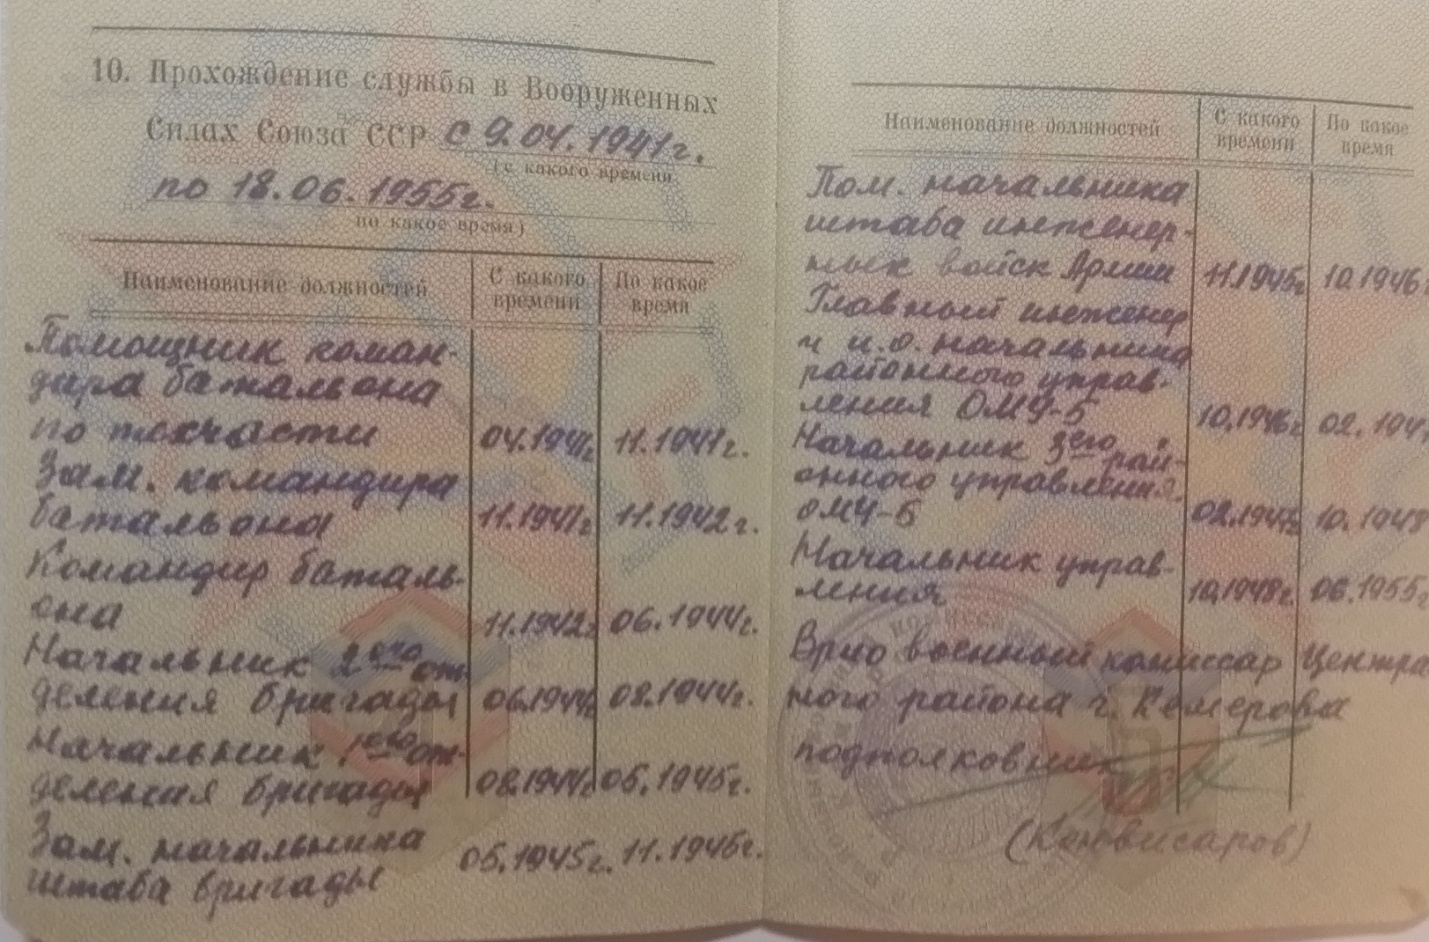 10. Прохождение службы в Вооруженных
Силах Союза ССР с 9.04.1941г.
(с какого времени
по 18.06.1955г.
по какое время)
Наименование должностей С какого времени По какое время
Помощник коман-
дира батальона
по техчасти 04.1941г. 11.1941г.
Зам. командира
батальона 11.1941г. 11.1942г.
Командир баталь-
она 11.1942г. 06.1944г.
Начальник 2ого от-
деления бригады 06.1944г. 08.1944г.
Начальник 1ого от-
деления бригады 08.1944г. 05.1945г.
Зам. начальника
штаба бригады 05.1945г. 11.1945г.
Наименование должностей С какого времени По какое время
Пом. начальника
штаба инженер-
ных войск Армии 11.1945г. 10.1946г
Главный инженер
и и.о. начальника
районного управ-
ления ОМУ-5 10.1946г. 02.194
Начальник 3его рай-
онного управления
ОМУ-5 02.1947г. 10.1948
Начальник управ-
ления 10.1948г. 06.1955г
Врио военный комиссар Центра
ного района г. Кемерова
подполковник
(Конвисаров)